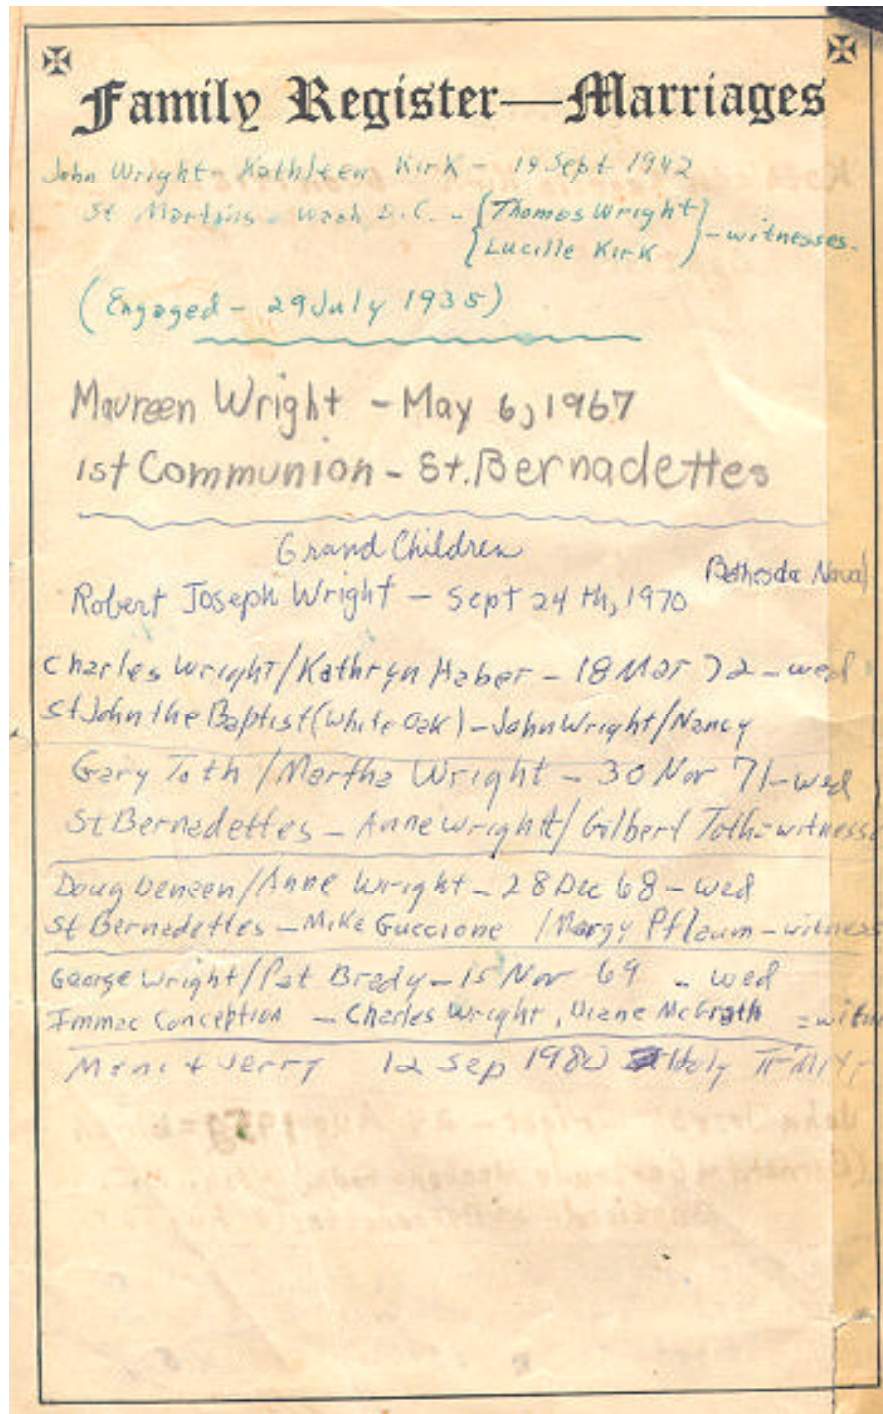 Family Register—Marriages
John Wright - Kathleen Kirk - 19 Sept 1942
St Martins - Wash D.C. - {Thomas Wright}
{Lucille Kirk} - witnesses.
(Engaged - 29 July 1935)
Maureen Wright - May 6, 1967
1st Communion - St. Bernadettes
Grand Children
Bethesda Naval
Robert Joseph Wright - Sept 24 th, 1970
Charles Wright/Kathryn Haber - 18 Mar 72 - wed
St John the Baptist (White Oak) - John Wright/Nancy
Gary Toth/Martha Wright - 30 Nov 71 - wed
St Bernadettes - Anne Wright/Gilbert Toth = witness
Doug Denzen/Anne Wright - 28 Dec 68 - wed
St Bernadettes - Mike Guccione / Margy Pflaum - witness
George Wright/Pat Brady - 15 Nov 69 - wed
Immac Conception - Charles Wright, Diane McGrath = witn
+ Jerry 12 Sep 1980 Holy Trinity